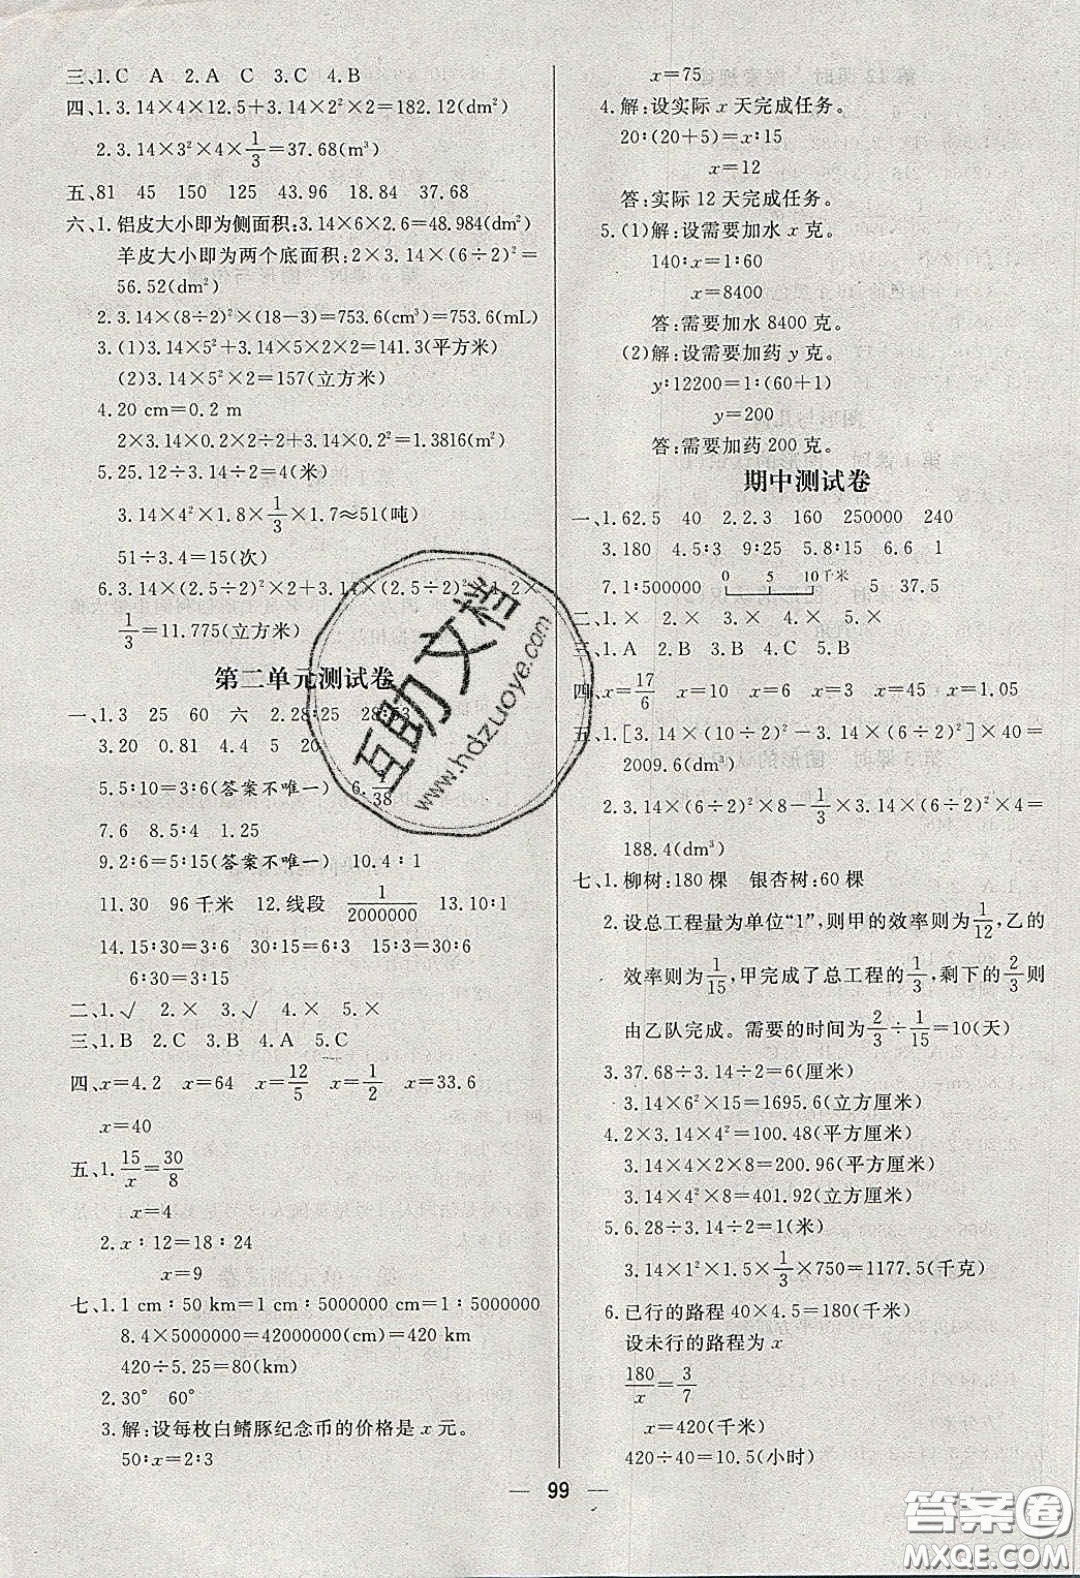 三、1.C　A　2.A　C　3.C　4.B
四、1.3.14×4×12.5+3.14×2²×2=182.12(dm²)
2.3.14×3²×4×1/3=37.68(m³)
五、81　45　150　125　43.96　18.84　37.68
六、1.铝皮大小即为侧面积:3.14×6×2.6=48.984(dm²)
羊皮大小即为两个底面积:2×3.14×(6÷2)²=
56.52(dm²)
2.3.14×(8÷2)²×(18−3)=753.6(cm³)=753.6(mL)
3.(1)3.14×5²+3.14×5×2×2=141.3(平方米)
(2)3.14×5²×2=157(立方米)
4.20 cm=0.2 m
2×3.14×0.2×2÷2+3.14×0.2²=1.3816(m²)
5.25.12÷3.14÷2=4(米)
3.14×4²×1.8×1/3×1.7≈51(吨)
51÷3.4=15(次)
6.3.14×(2.5÷2)²×2+3.14×(2.5÷2)²×1.2×
1/3=11.775(立方米)
第二单元测试卷
一、1.3　25　60　六　2.28:25　28:53
3.20　0.81　4.4　5　20
5.5:10=3:6(答案不唯一)　6.1/38
7.6　8.5:4　1.25
9.2:6=5:15(答案不唯一)　10.4:1
11.30　96千米　12.线段　1/2000000　13.10:1
14.15:30=3:6　30:15=6:3　15:3=30:6
6:30=3:15
二、1.√　2.×　3.√　4.×　5.×
三、1.B　2.C　3.B　4.A　5.C
四、x=4.2　x=64　x=12/5　x=1/2　x=33.6
x=40
五、1.15/x=30/8
x=4
2.x:12=18:24
x=9
七、1.1 cm:50 km=1 cm:5000000 cm=1:5000000
8.4×5000000=42000000(cm)=420 km
420÷5.25=80(km)
2.30°　60°
3.解:设每枚白鳍豚纪念币的价格是x元。
50:x=2:3
x=75
4.解:设实际x天完成任务。
20:(20+5)=x:15
x=12
答:实际12天完成任务。
5.(1)解:设需要加水x克。
140:x=1:60
x=8400
答:需要加水8400克。
(2)解:设需要加药y克。
y:12200=1:(60+1)
y=200
答:需要加药200克。
期中测试卷
一、1.62.5　40　2.2.3　160　250000　240
3.180　4.5:3　9:25　5.8:15　6.6　1
7.1:500000　0　5　10千米　5　37.5
二、1.×　2.×　3.×　4.×　5.×
三、1.A　2.B　3.B　4.C　5.B
四、x=17/6　x=10　x=6　x=3　x=45　x=1.05
五、1.[3.14×(10÷2)²−3.14×(6÷2)²]×40=
2009.6(dm³)
2.3.14×(6÷2)²×8−1/3×3.14×(6÷2)²×4=
188.4(dm³)
七、1.柳树:180棵　银杏树:60棵
2.设总工程量为单位“1”,则甲的效率则为1/12,乙的
效率则为1/15,甲完成了总工程的1/3,剩下的2/3则
由乙队完成。需要的时间为2/3÷1/15=10(天)
3.37.68÷3.14÷2=6(厘米)
3.14×6²×15=1695.6(立方厘米)
4.2×3.14×4²=100.48(平方厘米)
3.14×4×2×8=200.96(平方厘米)
3.14×4²×8=401.92(立方厘米)
5.6.28÷3.14÷2=1(米)
3.14×1²×1.5×1/3×750=1177.5(千克)
6.已行的路程40×4.5=180(千米)
设未行的路程为x
180/x=3/7
x=420(千米)
420÷40=10.5(小时)
99
互助文档
www.hdzuoye.com
答案圈
MXQE.COM